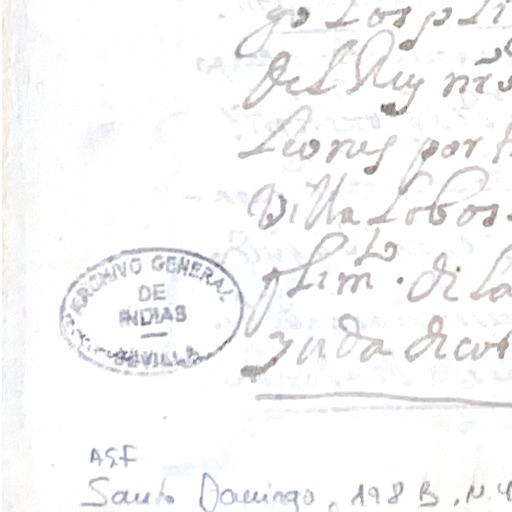 go Los pLi
del Rey nr̃o
Leones por
Villa Lobos
di la
yuda de cos
ARCHIVO GENERAL
DE
INDIAS
SEVILLA
Santo Domingo, 198 B, N.